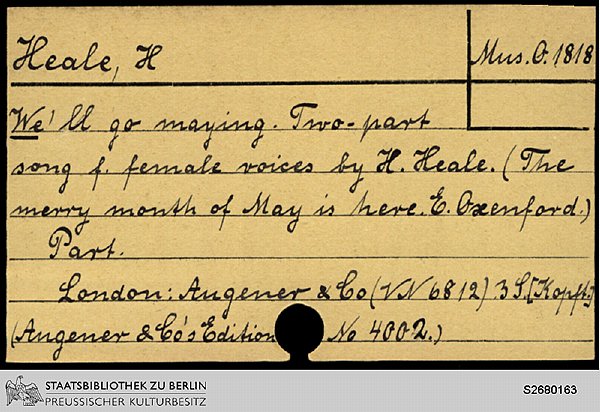 Heale, H
Mus. O. 1818
We'll go maying. Two-part
song f. female voices by H. Heale. (The
merry month of May is here. E. Oxenford.)
Part.
London: Augener & Co (VN 6812) 3 S. [Kopft.]
(Augener & Co's Edition No 4002.)
STAATSBIBLIOTHEK ZU BERLIN
PREUSSISCHER KULTURBESITZ
S2680163